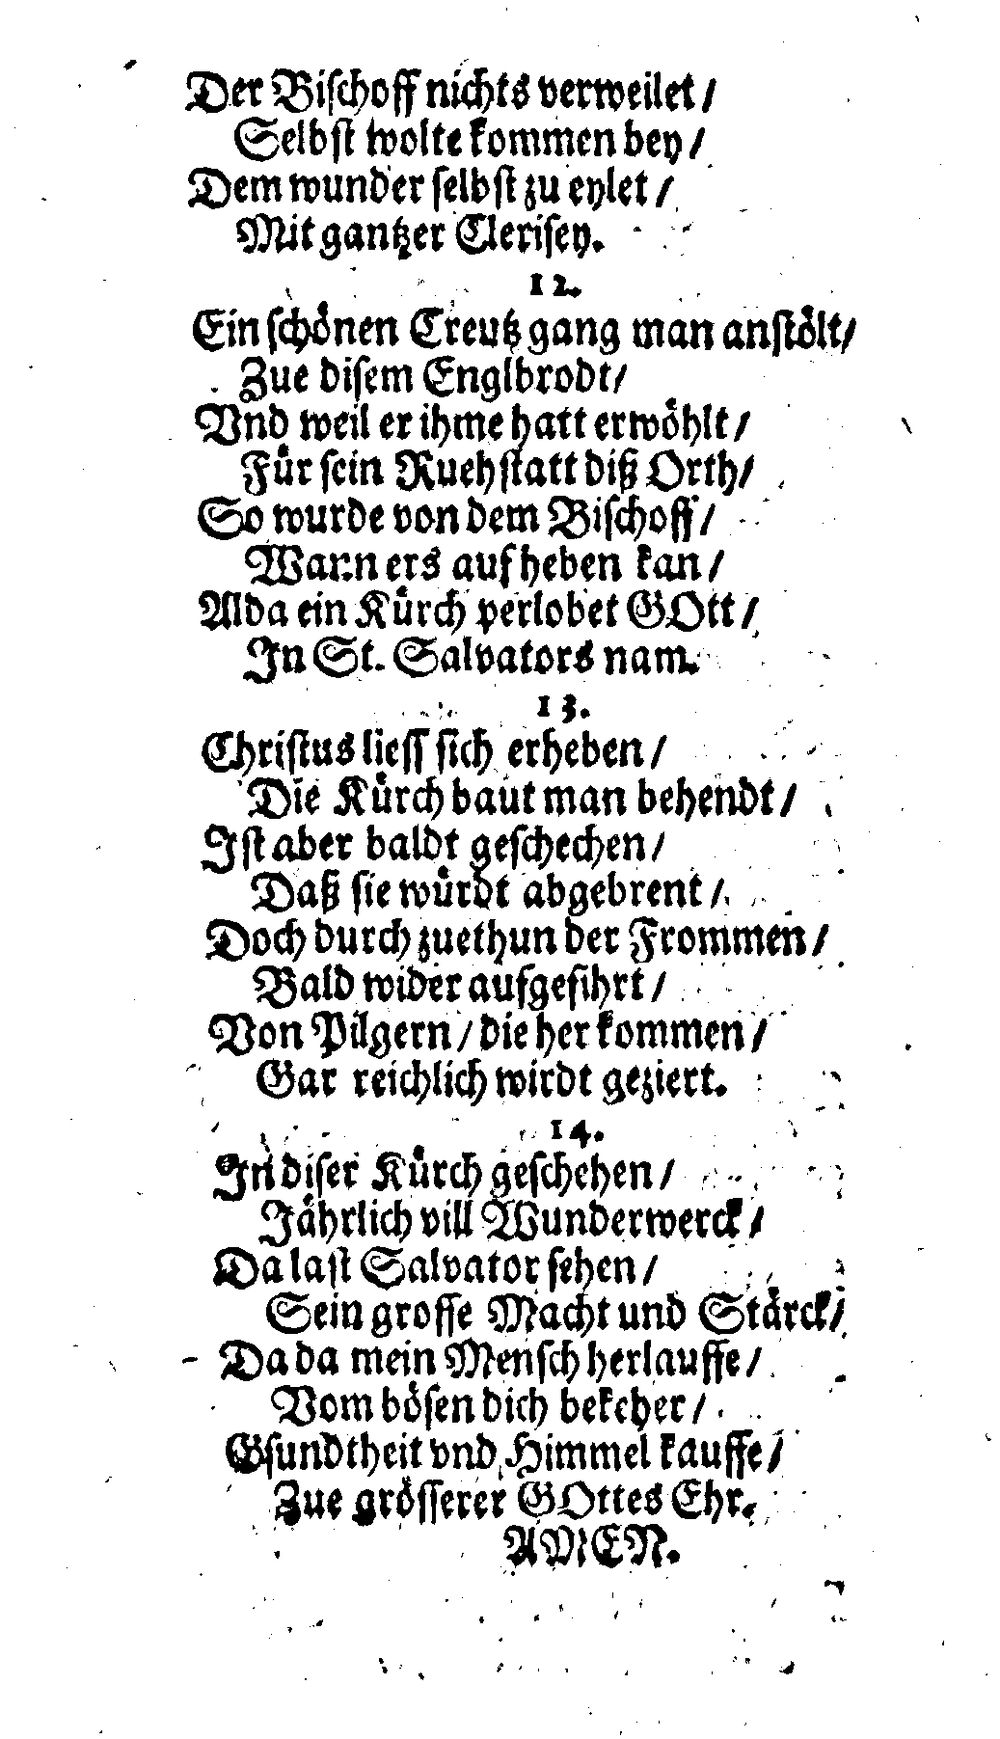 Der Bischoff nichts verweilet /
Selbst wolte kommen bey /
Dem wunder selbst zu eylet /
Mit gantzer Clerisey.
12.
Ein schönen Creutz gang man anstölt /
Zue disem Englbrodt /
Vnd weil er ihme hatt erwöhlt /
Für sein Ruehstatt diß Orth /
So wurde von dem Bischoff /
Wann ers auf heben kan /
Alda ein Kürch perlobet GOtt /
In St. Salvators nam.
13.
Christus liess sich erheben /
Die Kürch baut man behendt /
Ist aber baldt geschechen /
Daß sie würdt abgebrent /
Doch durch zuethun der Frommen /
Bald wider aufgefihrt /
Von Pilgern / die her kommen /
Gar reichlich wirdt geziert.
14.
In diser Kürch geschehen /
Jährlich vill Wunderwerck /
Da last Salvator sehen /
Sein grosse Macht und Störck /
Da da mein Mensch herlauffe /
Vom bösen dich bekeher /
Gsundtheit vnd Himmel kauffe /
Zue grösserer GOttes Ehr.
AMEN.